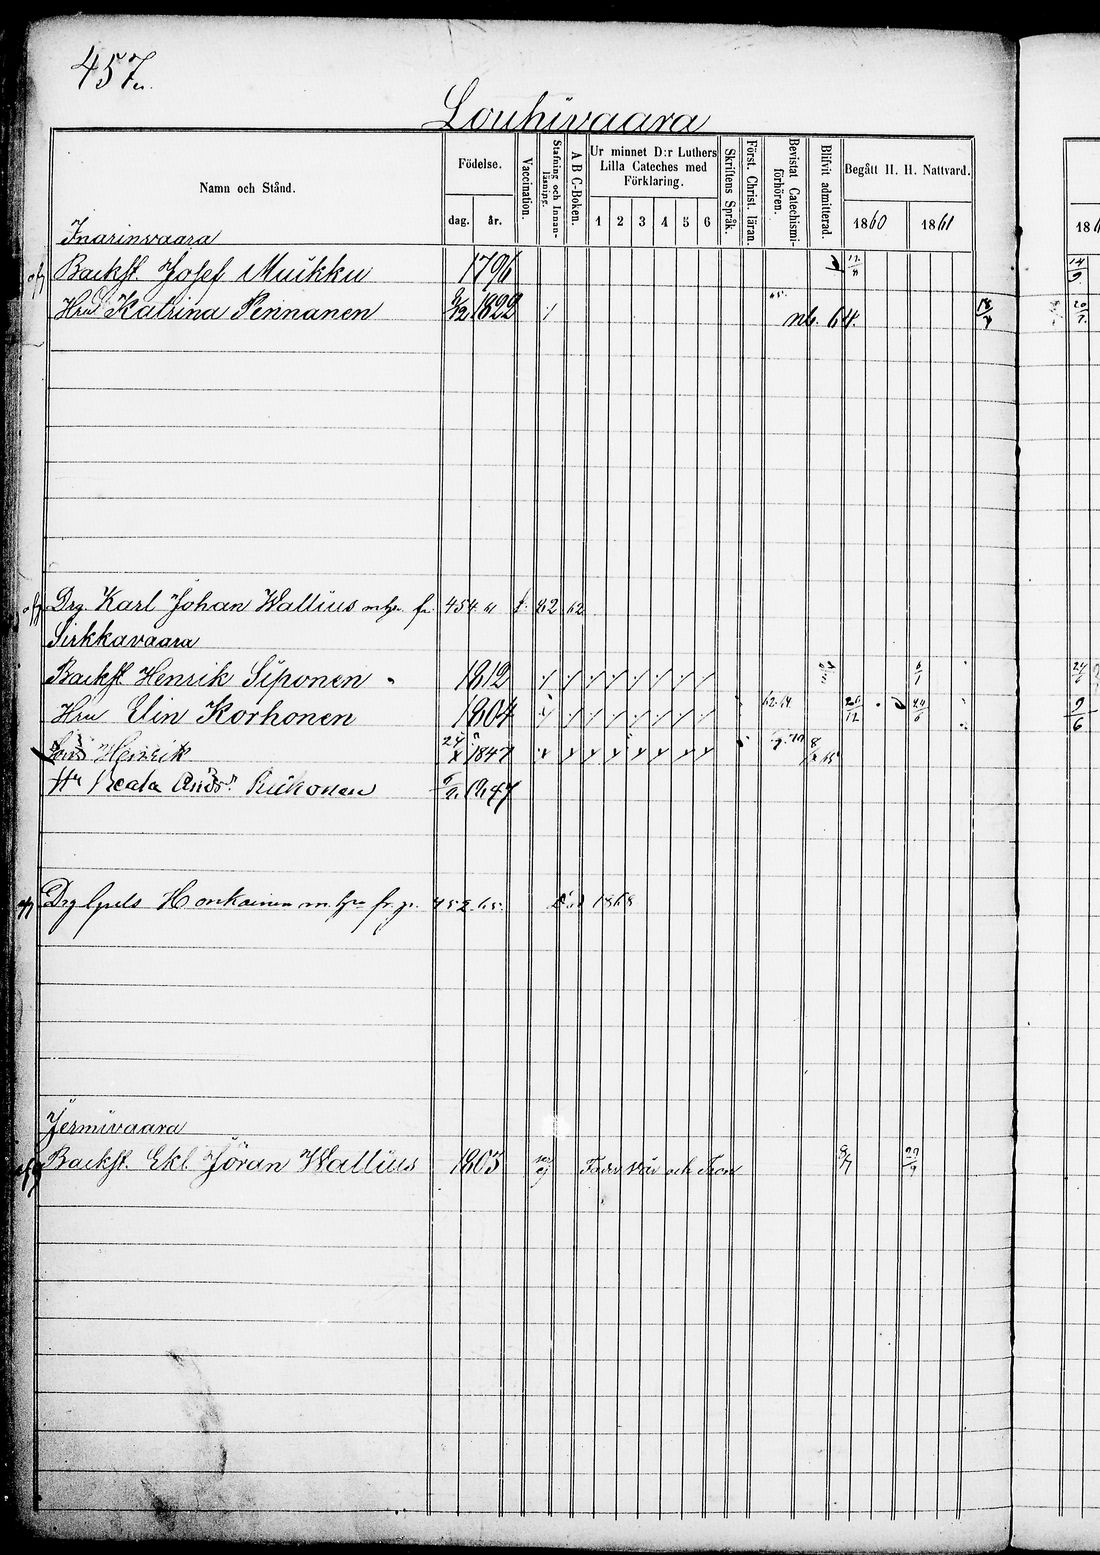 457.
Louhivaara
Namn och Stånd.
Födelse.
dag. år.
Vaccination.
Stafning och Innanläsning.
A B C-Boken.
Ur minnet D:r Luthers Lilla Cateches med Förklaring.
1 2 3 4 5 6
Skriftens Språk.
Först. Christ. läran.
Bevistat Catechismiförhören.
Blifvit admitterad.
Begått H. H. Nattvard.
1860 1861 186
Inarinvaara
Backst. Josef Muikku 1796 12/8 14/9
Hru Katrina Pennanen 9/12 1822 nb. 64. 18/7 20/7
Drg. Karl Johan Wallius m hu fr. 454 61 62 62
Sirkkavaara
Backst Henrik Siponen 1812
Hru Elin Korhonen 1804 62.64. 9/6
Son Henrik 24/x 1847
Hu Beata Ands. Riikonen 1847
Drg Honkainen m hu fr. p. 452.65. 1868
Jermivaara
Backst. Ekl. Jöran Wallius 1803 Fader vår och Tron 8/7 22/9